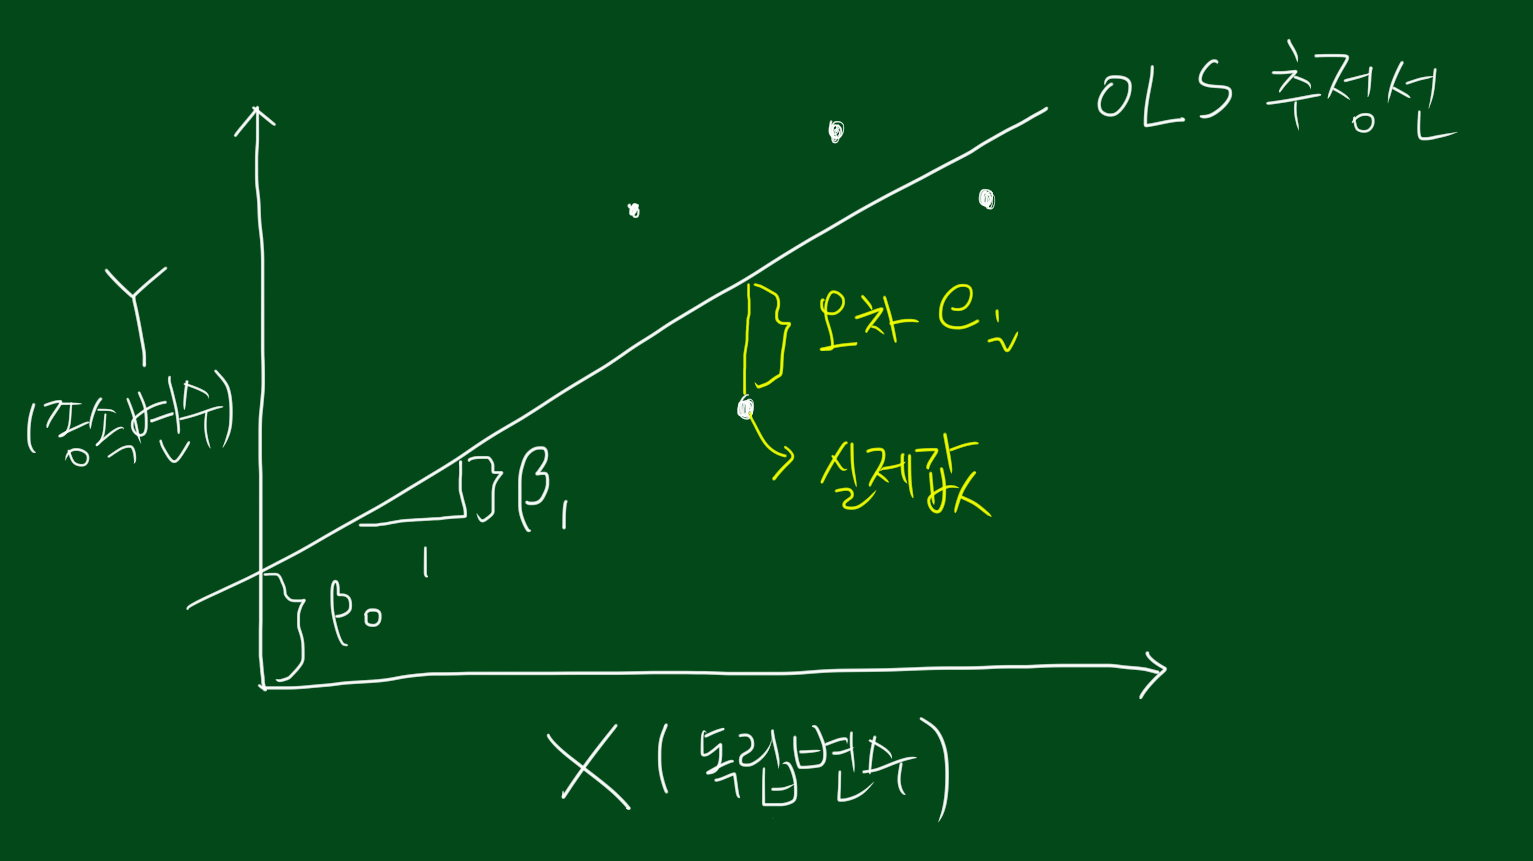 OLS 추정선
Y
(종속변수)
오차 ei
실제값
β1
1
β0
X (독립변수)